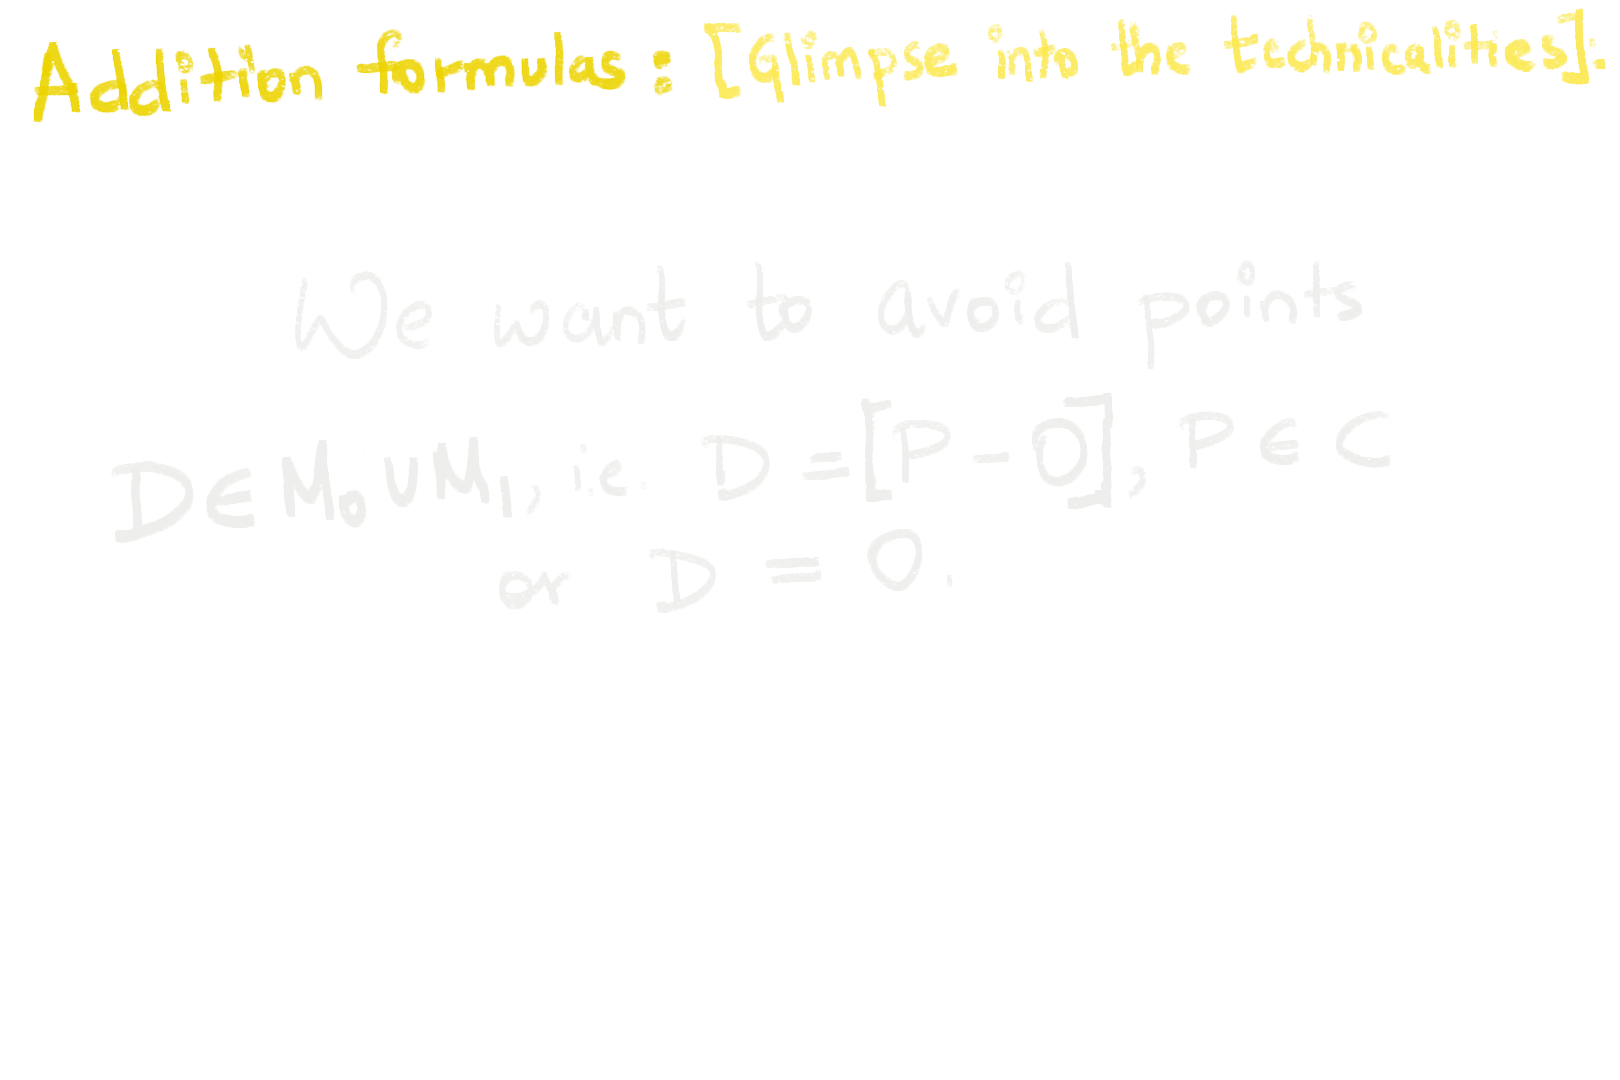 Addition formulas : [Glimpse into the technicalities].
We want to avoid points
D ∈ M₀ ∪ M₁, i.e. D = [P - O], P ∈ C
or D = O.